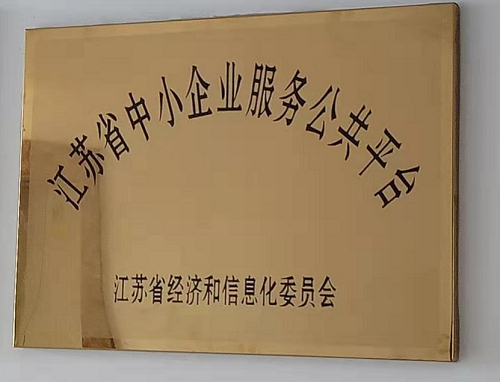 江苏省中小企业服务公共平台
江苏省经济和信息化委员会